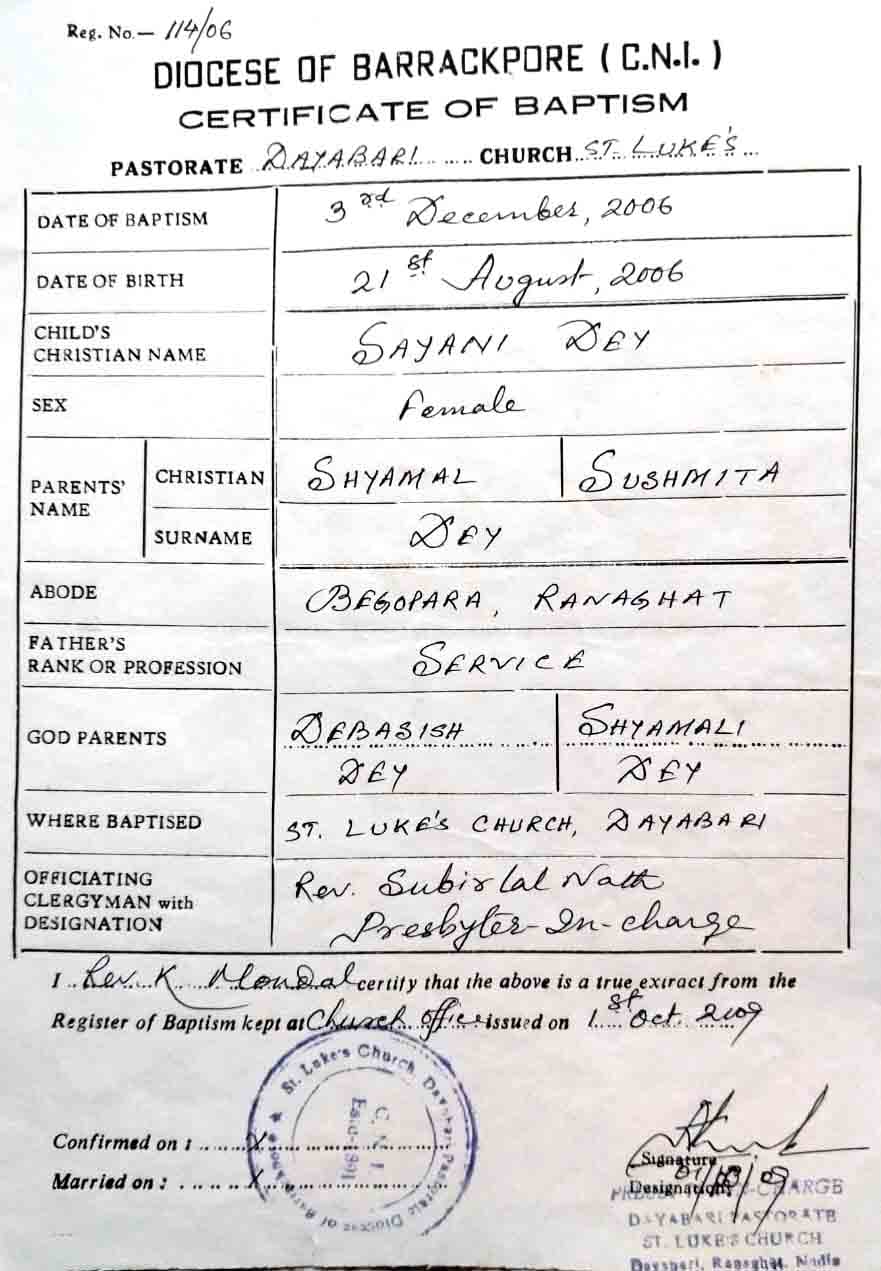 Reg. No.— 114/06
DIOCESE OF BARRACKPORE ( C.N.I. )
CERTIFICATE OF BAPTISM
PASTORATE DAYABARI CHURCH ST. LUKE'S
DATE OF BAPTISM 3rd December, 2006
DATE OF BIRTH 21st August, 2006
CHILD'S
CHRISTIAN NAME SAYANI DEY
SEX Female
PARENTS' NAME CHRISTIAN SHYAMAL SUSHMITA
SURNAME DEY
ABODE BEGOPARA, RANAGHAT
FATHER'S
RANK OR PROFESSION SERVICE
GOD PARENTS DEBASISH SHYAMALI
DEY DEY
WHERE BAPTISED ST. LUKE'S CHURCH, DAYABARI
OFFICIATING Rev. Subir lal Nath
CLERGYMAN with
DESIGNATION Presbyter-In-charge
I Rev. K. Mondal certify that the above is a true extract from the
Register of Baptism kept at Church office issued on 1st Oct. 2009
St. Luke's Church, Dayabari Pastorate Diocese of Barrackpore
C. N. I.
Confirmed on : X
Married on : X
Signature
01/10/09
Designation
-CHARGE
DAYABARI PASTORATE
ST. LUKE'S CHURCH
Dayabari, Ranaghat, Nadia